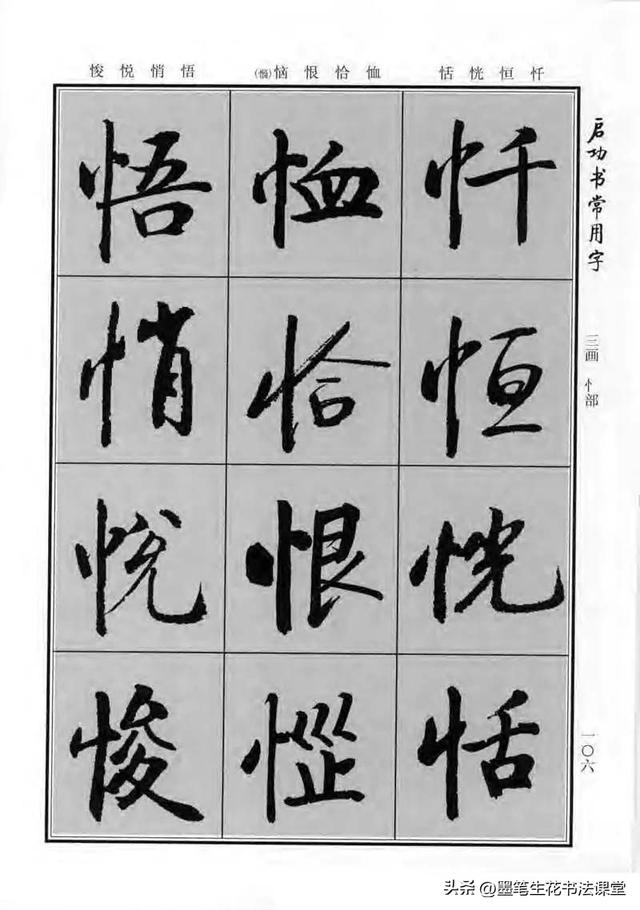 悛悦悄悟
(惱)恼恨恰恤
恬恍恒忏
启功书常用字
三画 忄部
一〇六
忏恒恍恬
恤恰恨惱
悟悄悦悛
头条 @墨笔生花书法课堂